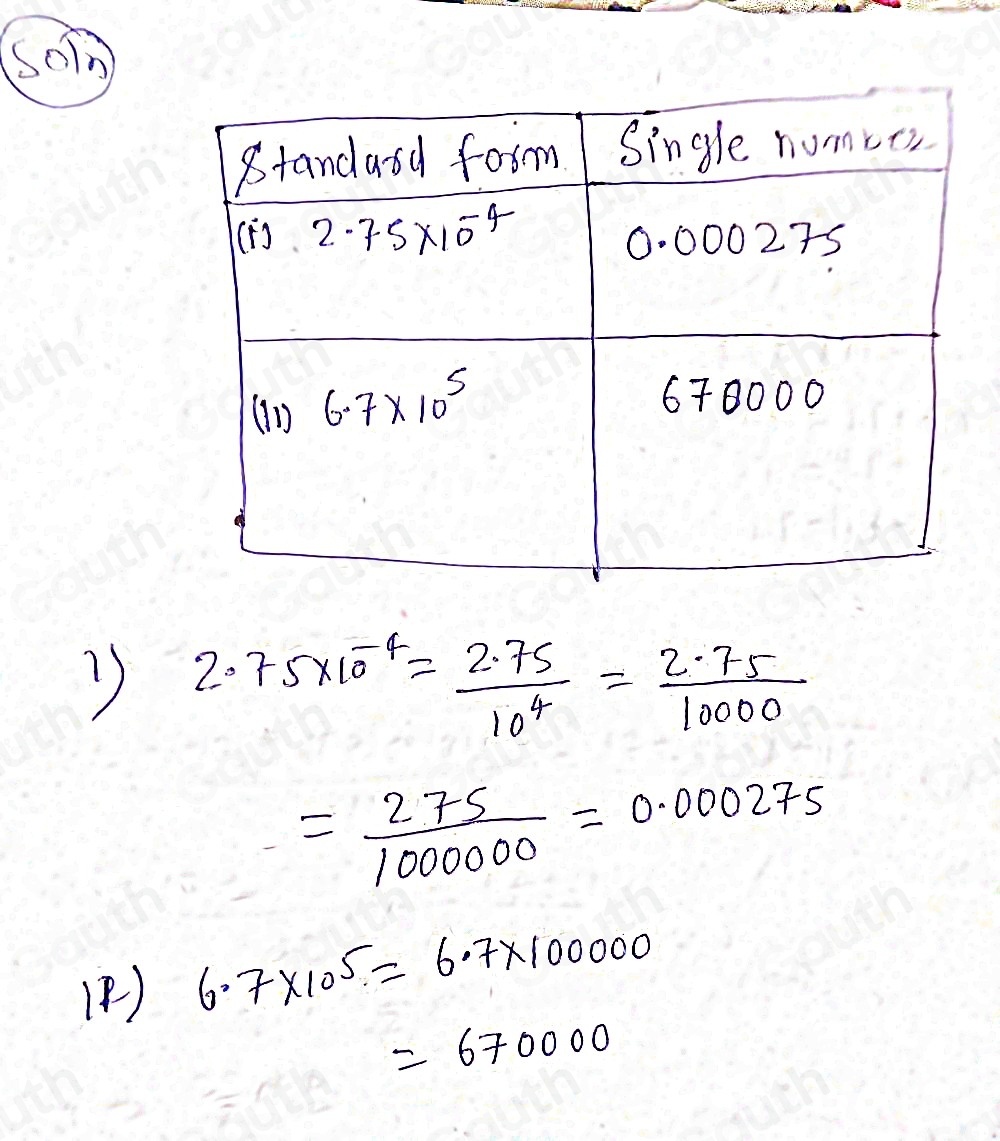 Soln
Standard form Single number
(i) 2.75×10⁻⁴ 0.000275
(ii) 6.7×10⁵ 670000
1) 2.75×10⁻⁴ = 2.75/10⁴ = 2.75/10000
= 275/1000000 = 0.000275
11) 6.7×10⁵ = 6.7×100000
= 670000